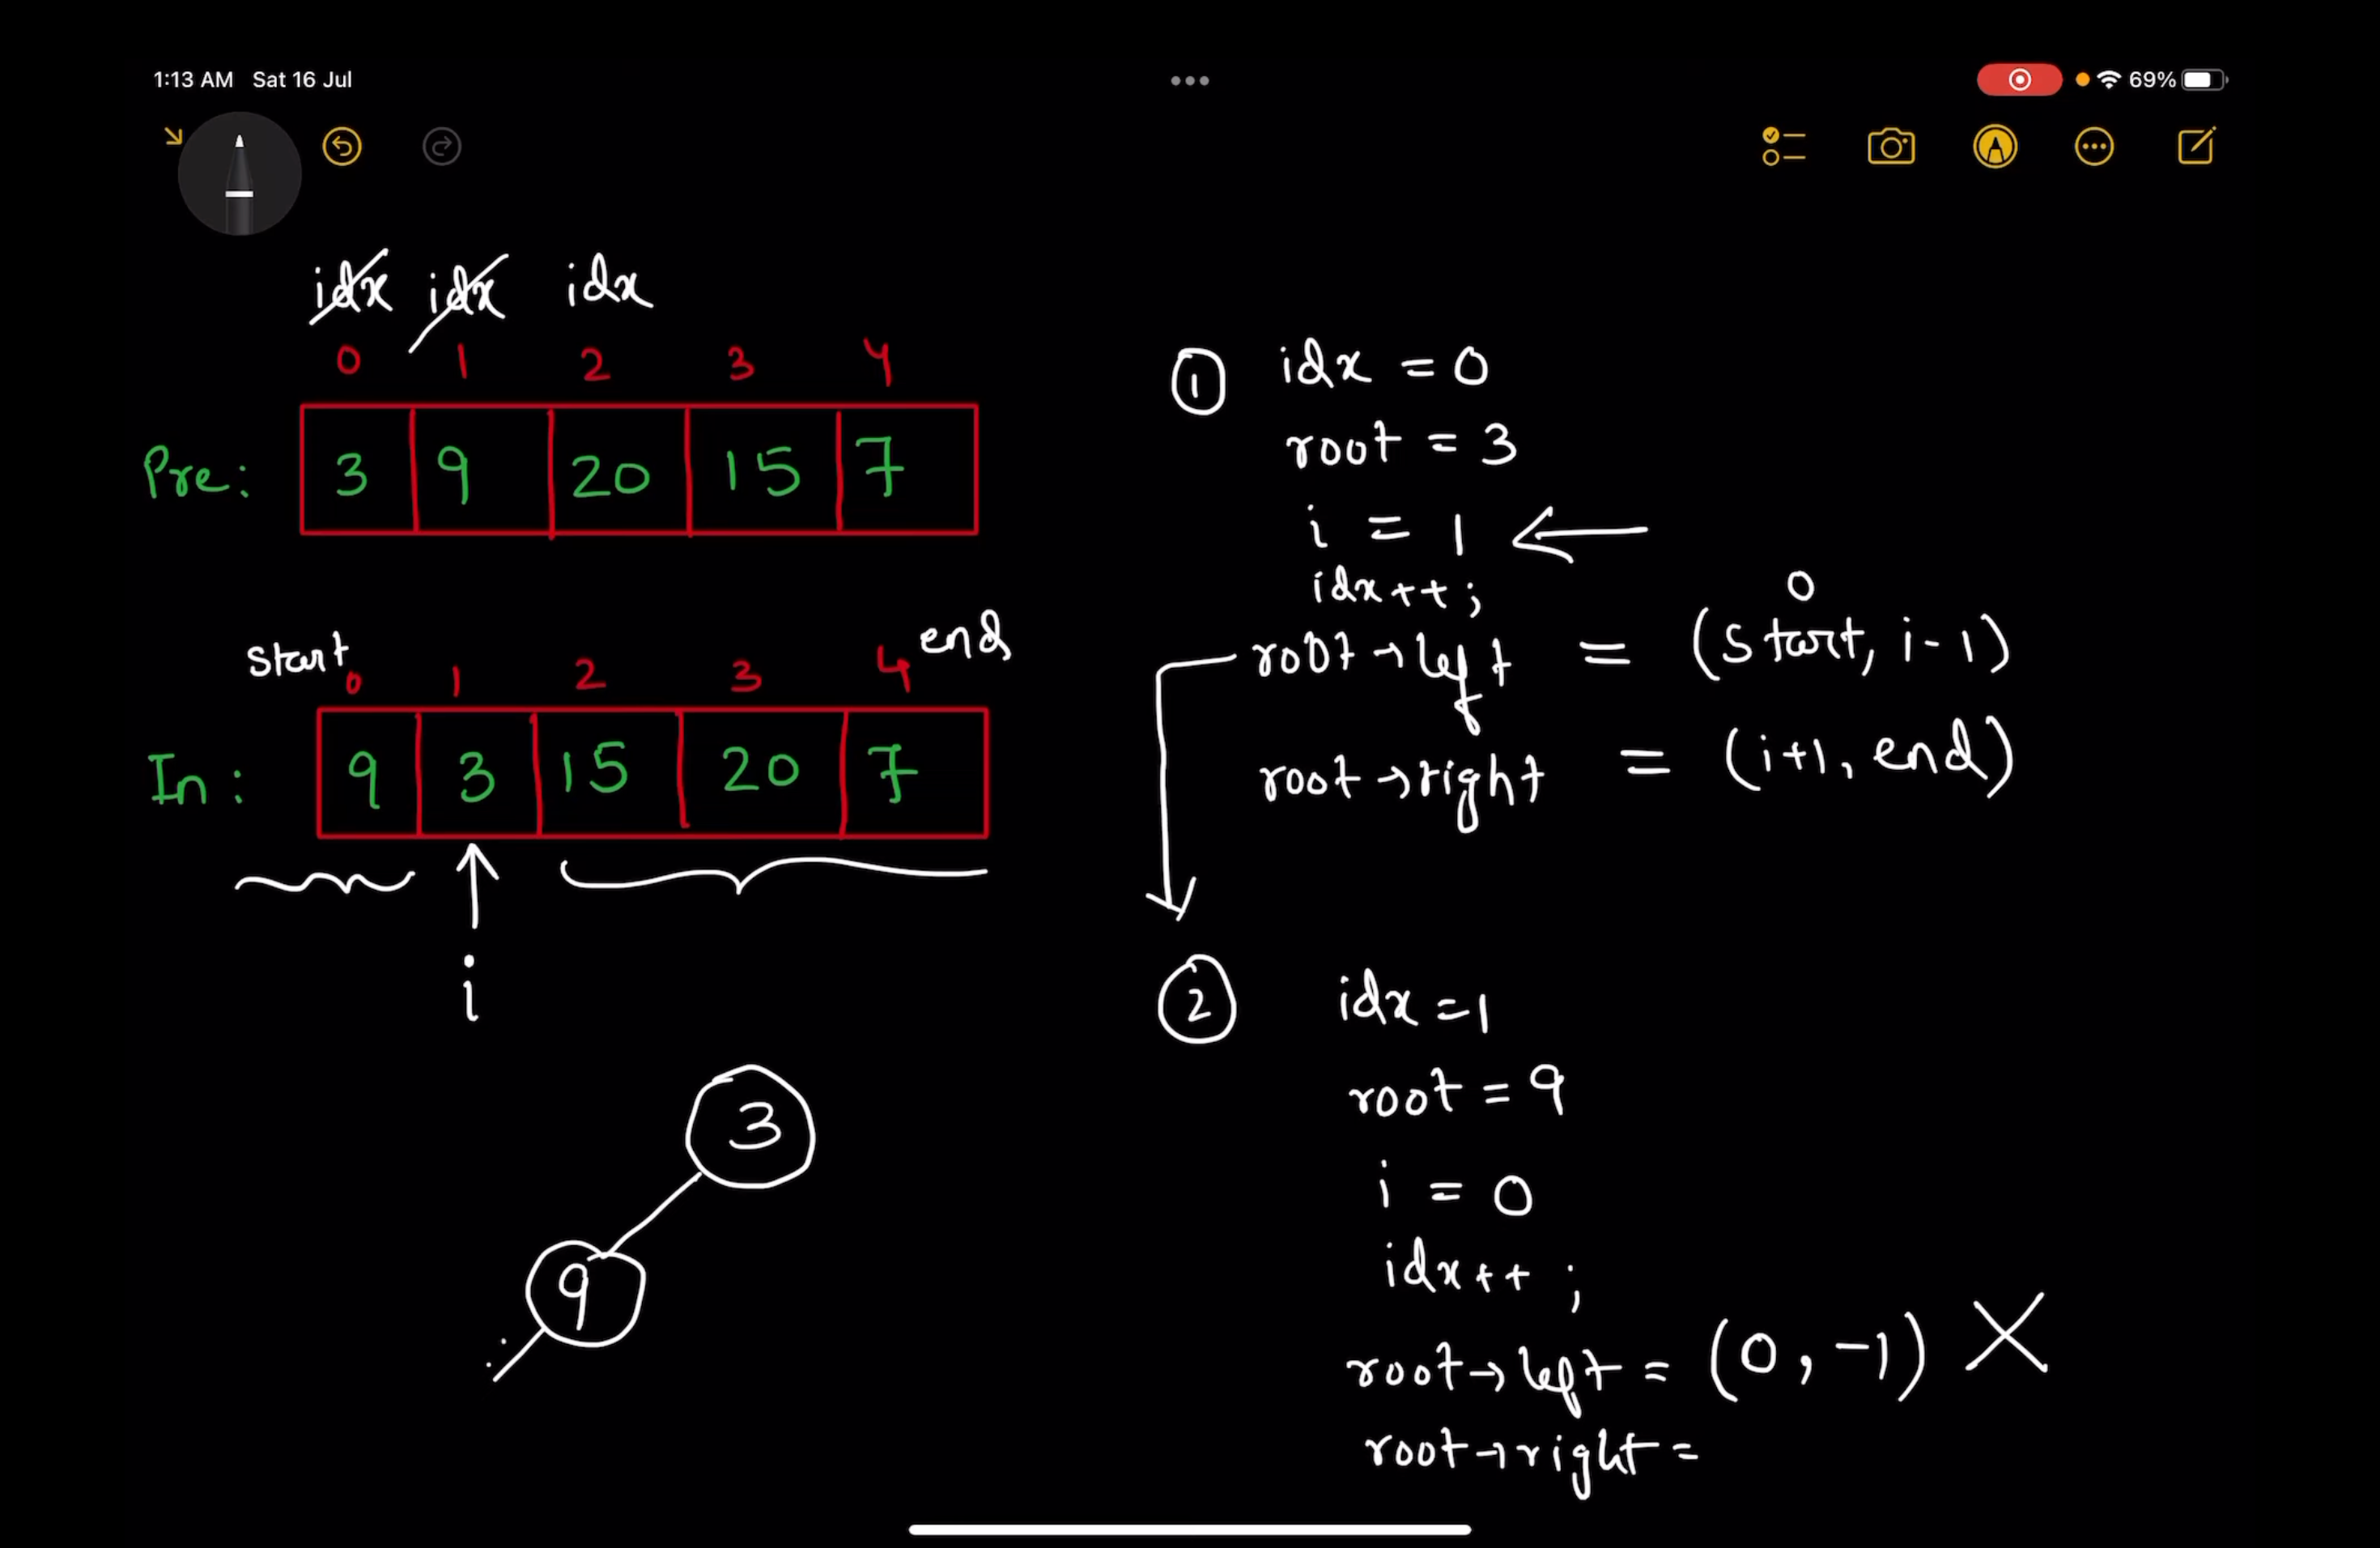 1:13 AM Sat 16 Jul
69%
idx idx idx
0 1 2 3 4
Pre: 3 9 20 15 7
start end
0 1 2 3 4
In: 9 3 15 20 7
i
3
9
① idx = 0
root = 3
i = 1 ←
idx++;
0
root→left = (start, i-1)
root→right = (i+1, end)
② idx=1
root = 9
i = 0
idx++;
root→left = (0, -1) X
root→right =